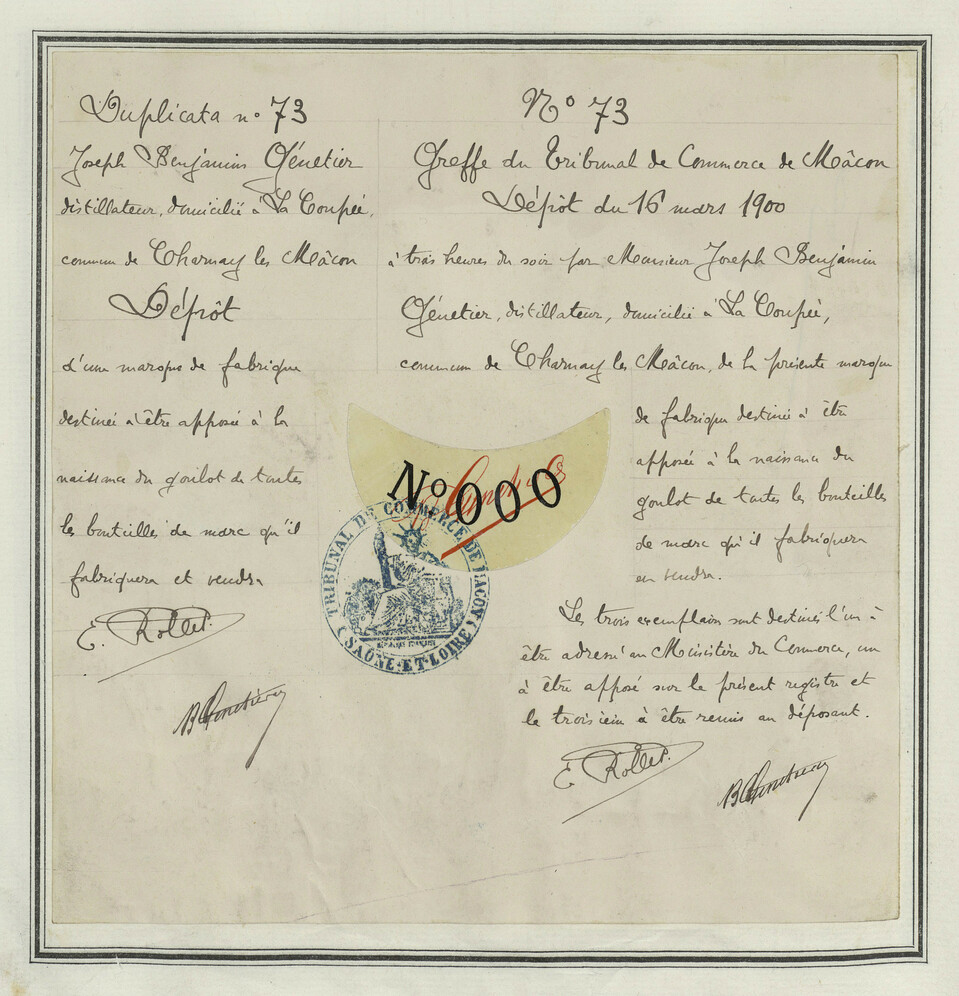 Duplicata n° 73
Joseph Benjamin Génetier
distillateur, domicilié à La Coupée,
commune de Charnay les Mâcon
Dépôt
d'une marque de fabrique
destinée à être apposée à la
naissance du goulot de toutes
les bouteilles de marc qu'il
fabriquera et vendra
E. Rollet.
N° 73
Greffe du Tribunal de Commerce de Mâcon
Dépôt du 16 mars 1900
à trois heures du soir par Monsieur Joseph Benjamin
Génetier, distillateur, domicilié à La Coupée,
commune de Charnay les Mâcon, de la présente marque
de fabrique destinée à être
apposée à la naissance du
goulot de toutes les bouteilles
de marc qu'il fabriquera
en vendra.
N° 000
TRIBUNAL DE COMMERCE DE MACON
(SAÔNE-ET-LOIRE)
Les trois exemplaires sont destinés l'un à
être adressé au Ministère du Commerce, un
à être apposé sur le présent registre et
le troisième à être remis au déposant.
E. Rollet.